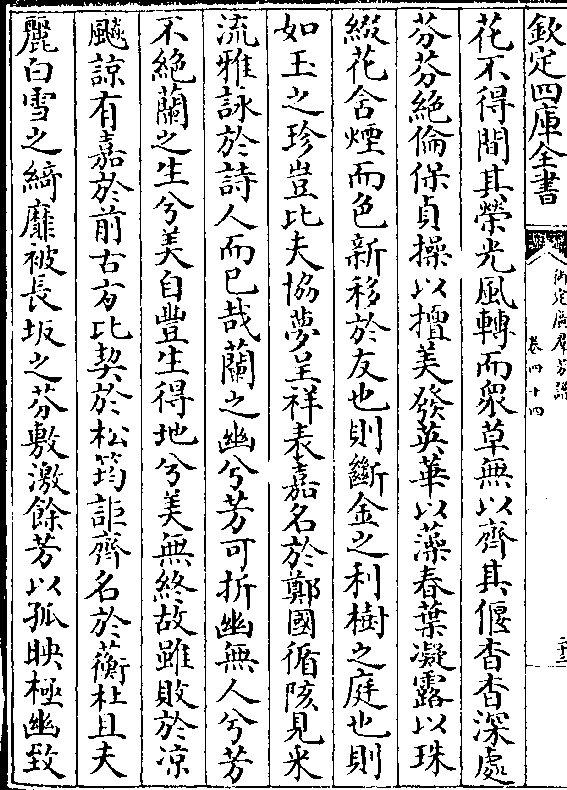 欽定四庫全書
卷四十四
花不得間其榮光風轉而衆草無以齊其偃杳杳深處
芬芬絶倫保貞操以擅美發英華以藻春葉凝露以珠
綴花含煙而色新移於友也則斷金之利樹之庭也則
如玉之珍豈比夫協夢呈祥表嘉名於鄭國循陔見米
流雅詠於詩人而已哉蘭之幽兮芳可折幽無人兮芳
不絶蘭之生兮美自豐生得地兮美無終故雖敗於凉
飈諒有嘉於前古方比契於松筠詎齊名於蘅杜且夫
麗白雪之綺靡被長坂之芬敷激餘芳以孤映極幽致